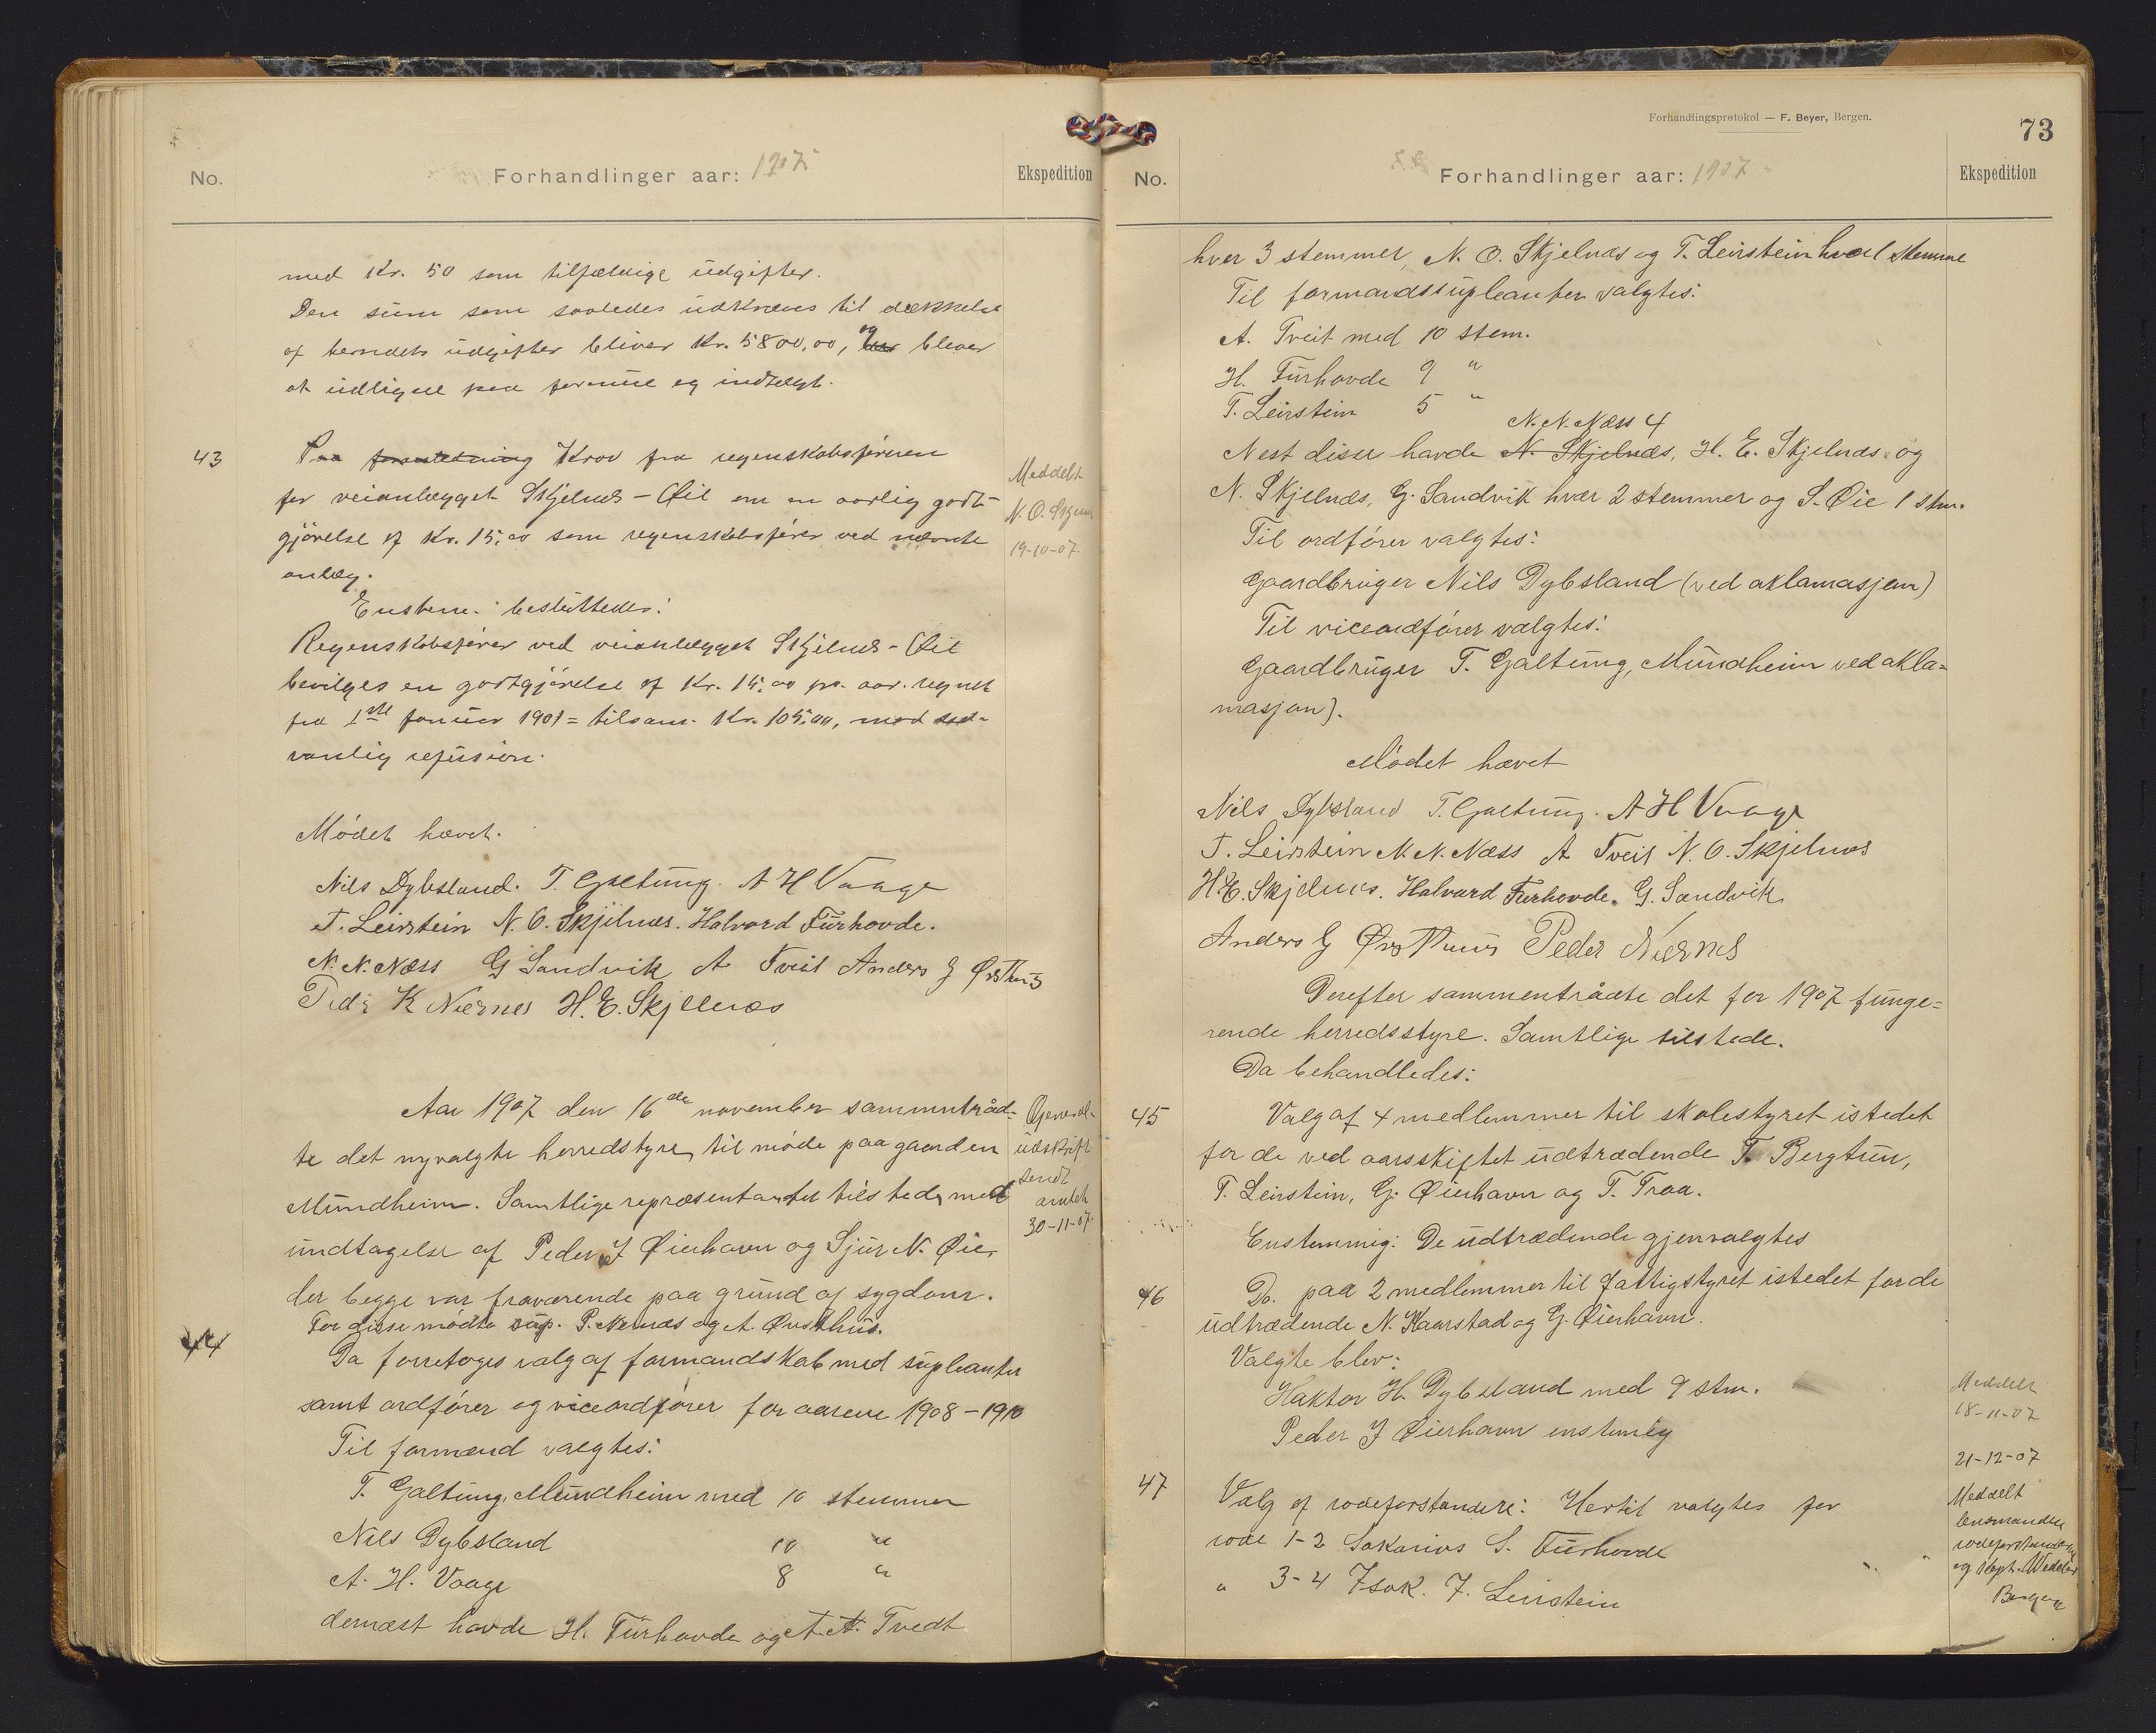 No.
Forhandlinger aar: 1907
Ekspedition
med Kr. 50 som tilfældige udgifter.
Den sum som saaledes udkræves til dækkelse
af herredets udgifter bliver Kr. 5800,00, og blever
at udligne paa formue og indtægt.
43
Paa foranledning Krav fra regenskabsføreren
for veianlægget Skjelnes - Øie om en aarlig godt-
gjørelse af Kr. 15,00 som regenskabsfører ved nævnte
anlæg.
Meddelt
N. O. Skjelnes
19-10-07.
Enstem. besluttedes:
Regenskabsfører ved veianlægget Skjelnes - Øie
bevilges en godtgjørelse af Kr. 15,00 pr. aar. regnet
fra 1ste januar 1901 = tilsam. Kr. 105,00, mod sed-
vanlig refusion.
Mødet hævet.
Nils Dybsland. T. Galtung. A H Vaage
T. Leirstein N. O. Skjelnæs. Halvard Furhovde.
N. N. Næss G Sandvik A Tveit Anders G Ørsthus
Peder K Nernes H. E. Skjelnæs
Aar 1907 den 16de november sammentråd-
te det nyvalgte herredstyre, til møde paa gaarden
Mundheim. Samtlige repræsentanter tilstede, med
undtagelse af Peder J Øierhavn og Sjur N. Øie,
der begge var fraværende paa grund af sygdom.
For disse mødte sup. P. Nernæs og A. Ørsthus.
General-
udskrift
sendt
amtet
30-11-07.
44
Da forretoges valg af formandskab med supleanter
samt ordfører og viceordfører for aarene 1908 - 1910
Til formænd valgtes:
T. Galtung, Mundheim med 10 stemmer
Nils Dybsland 10 "
A. H. Vaage 8 "
dernæst havde H. Furhovde og A. A. Tvedt
Forhandlingsprotokol — F. Beyer, Bergen.
73
No.
Forhandlinger aar: 1907
Ekspedition
hver 3 stemmer, N. O. Skjelnæs og T. Leirstein hver 1 stemme
Til formandssupleanter valgtes:
A. Tveit med 10 stem.
H. Furhovde 9 "
T. Leirstein 5 "
N. N. Næss 4
Nest disse havde N. Skjelnæs, H. E. Skjelnæs og
N. Skjelnæs, G. Sandvik hver 2 stemmer og S. Øie 1 stm.
Til ordfører valgtes:
Gaardbruger Nils Dybsland (ved aklamasjon)
Til viceordfører valgtes:
Gaardbruger T. Galtung, Mundheim ved akla=
masjon).
Mødet hævet
Nils Dybsland T. Galtung. A H Vaage
T. Leirstein N. N. Næss A Tveit N. O. Skjelnæs
H. E. Skjelnæs. Halvard Furhovde. G. Sandvik
Anders G Ørsthus Peder Nernes
Derefter sammentrådte det for 1907 funge=
rende herredsstyre. Samtlige tilstede.
Da behandledes:
45
Valg af 4 medlemmer til skolestyret istedet
for de ved aarsskiftet udtrædende T. Bergtun,
T. Leirstein, G. Øierhavn og T. Traa.
Enstemmig: De udtrædende gjenvalgtes
46
Do. paa 2 medlemmer til fattigstyret istedet for de
udtrædende N. Kaarstad og G. Øierhavn.
Valgte blev:
Haktor H. Dybsland med 9 stm.
Peder J Øierhavn enstemig
Meddelt
18-11-07
47
Valg af rodeforstandere: Hertil valgtes for
rode 1-2 Sakarias S. Furhovde
" 3-4 Isak. J. Leirstein
21-12-07
Meddelt
lensmanden
rodeforstanderne
og kapt. Wedeler
Bergen